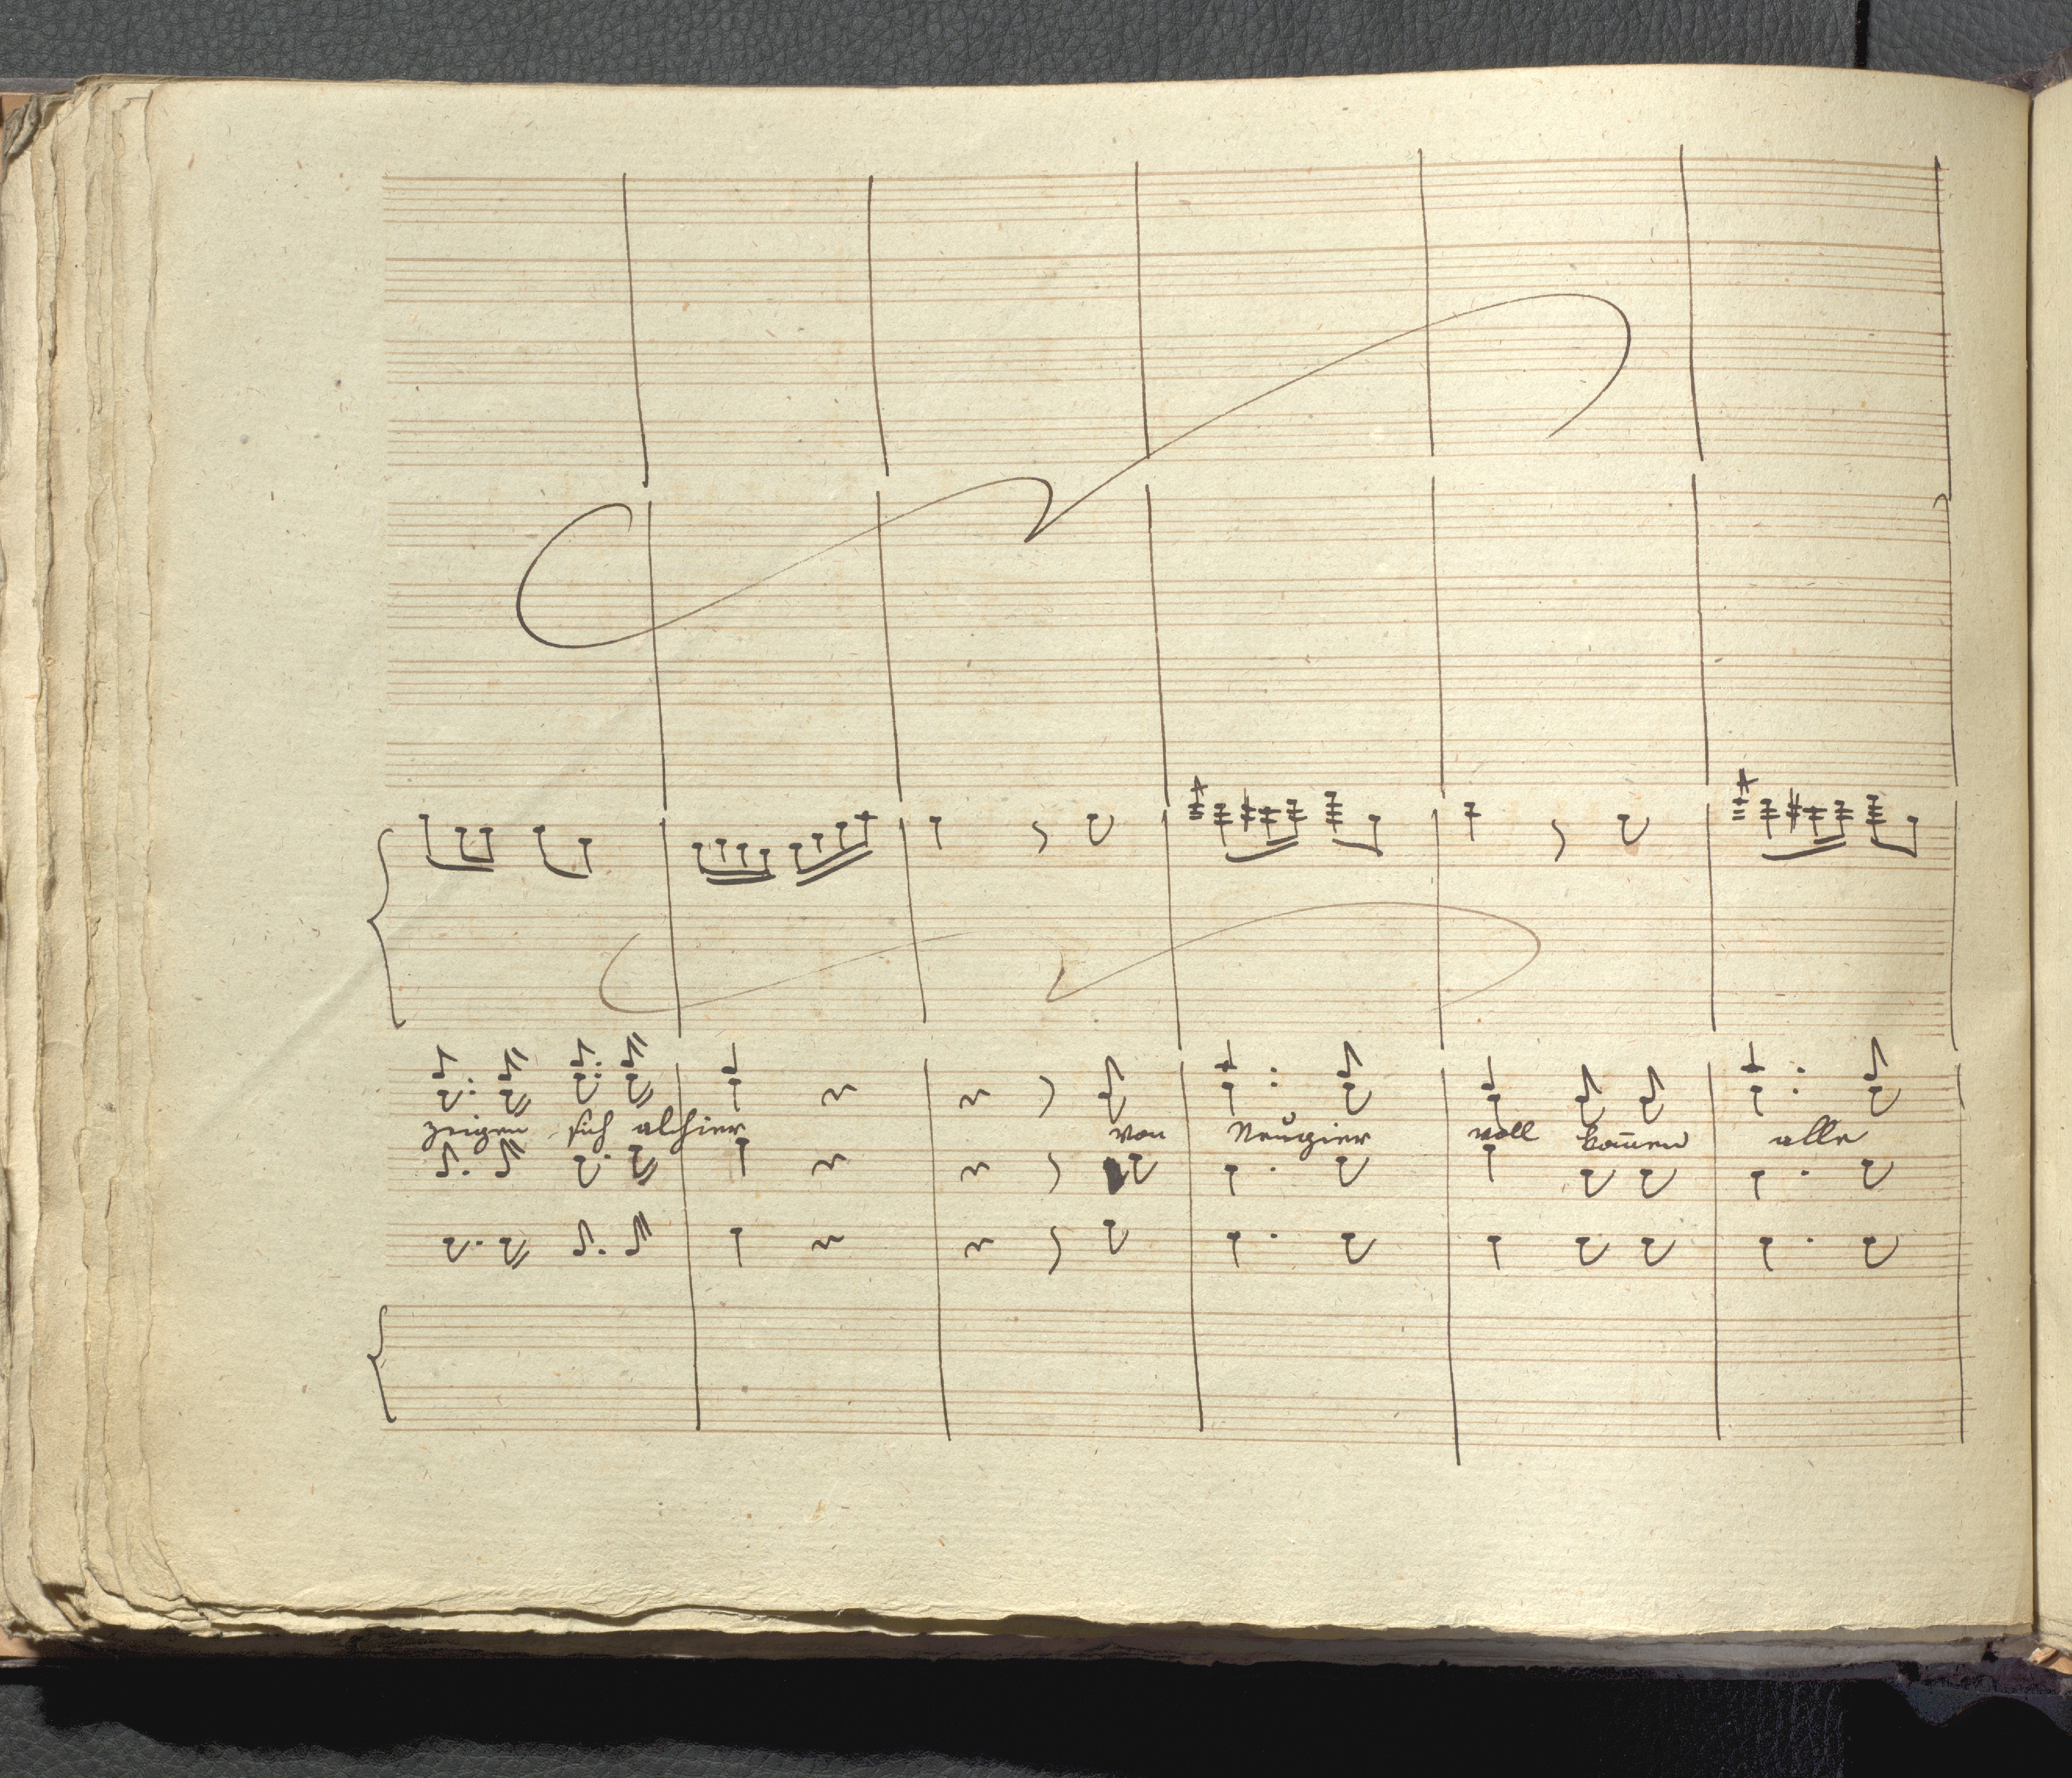 zeigen sich alhier von Neugier voll kom̄en alle